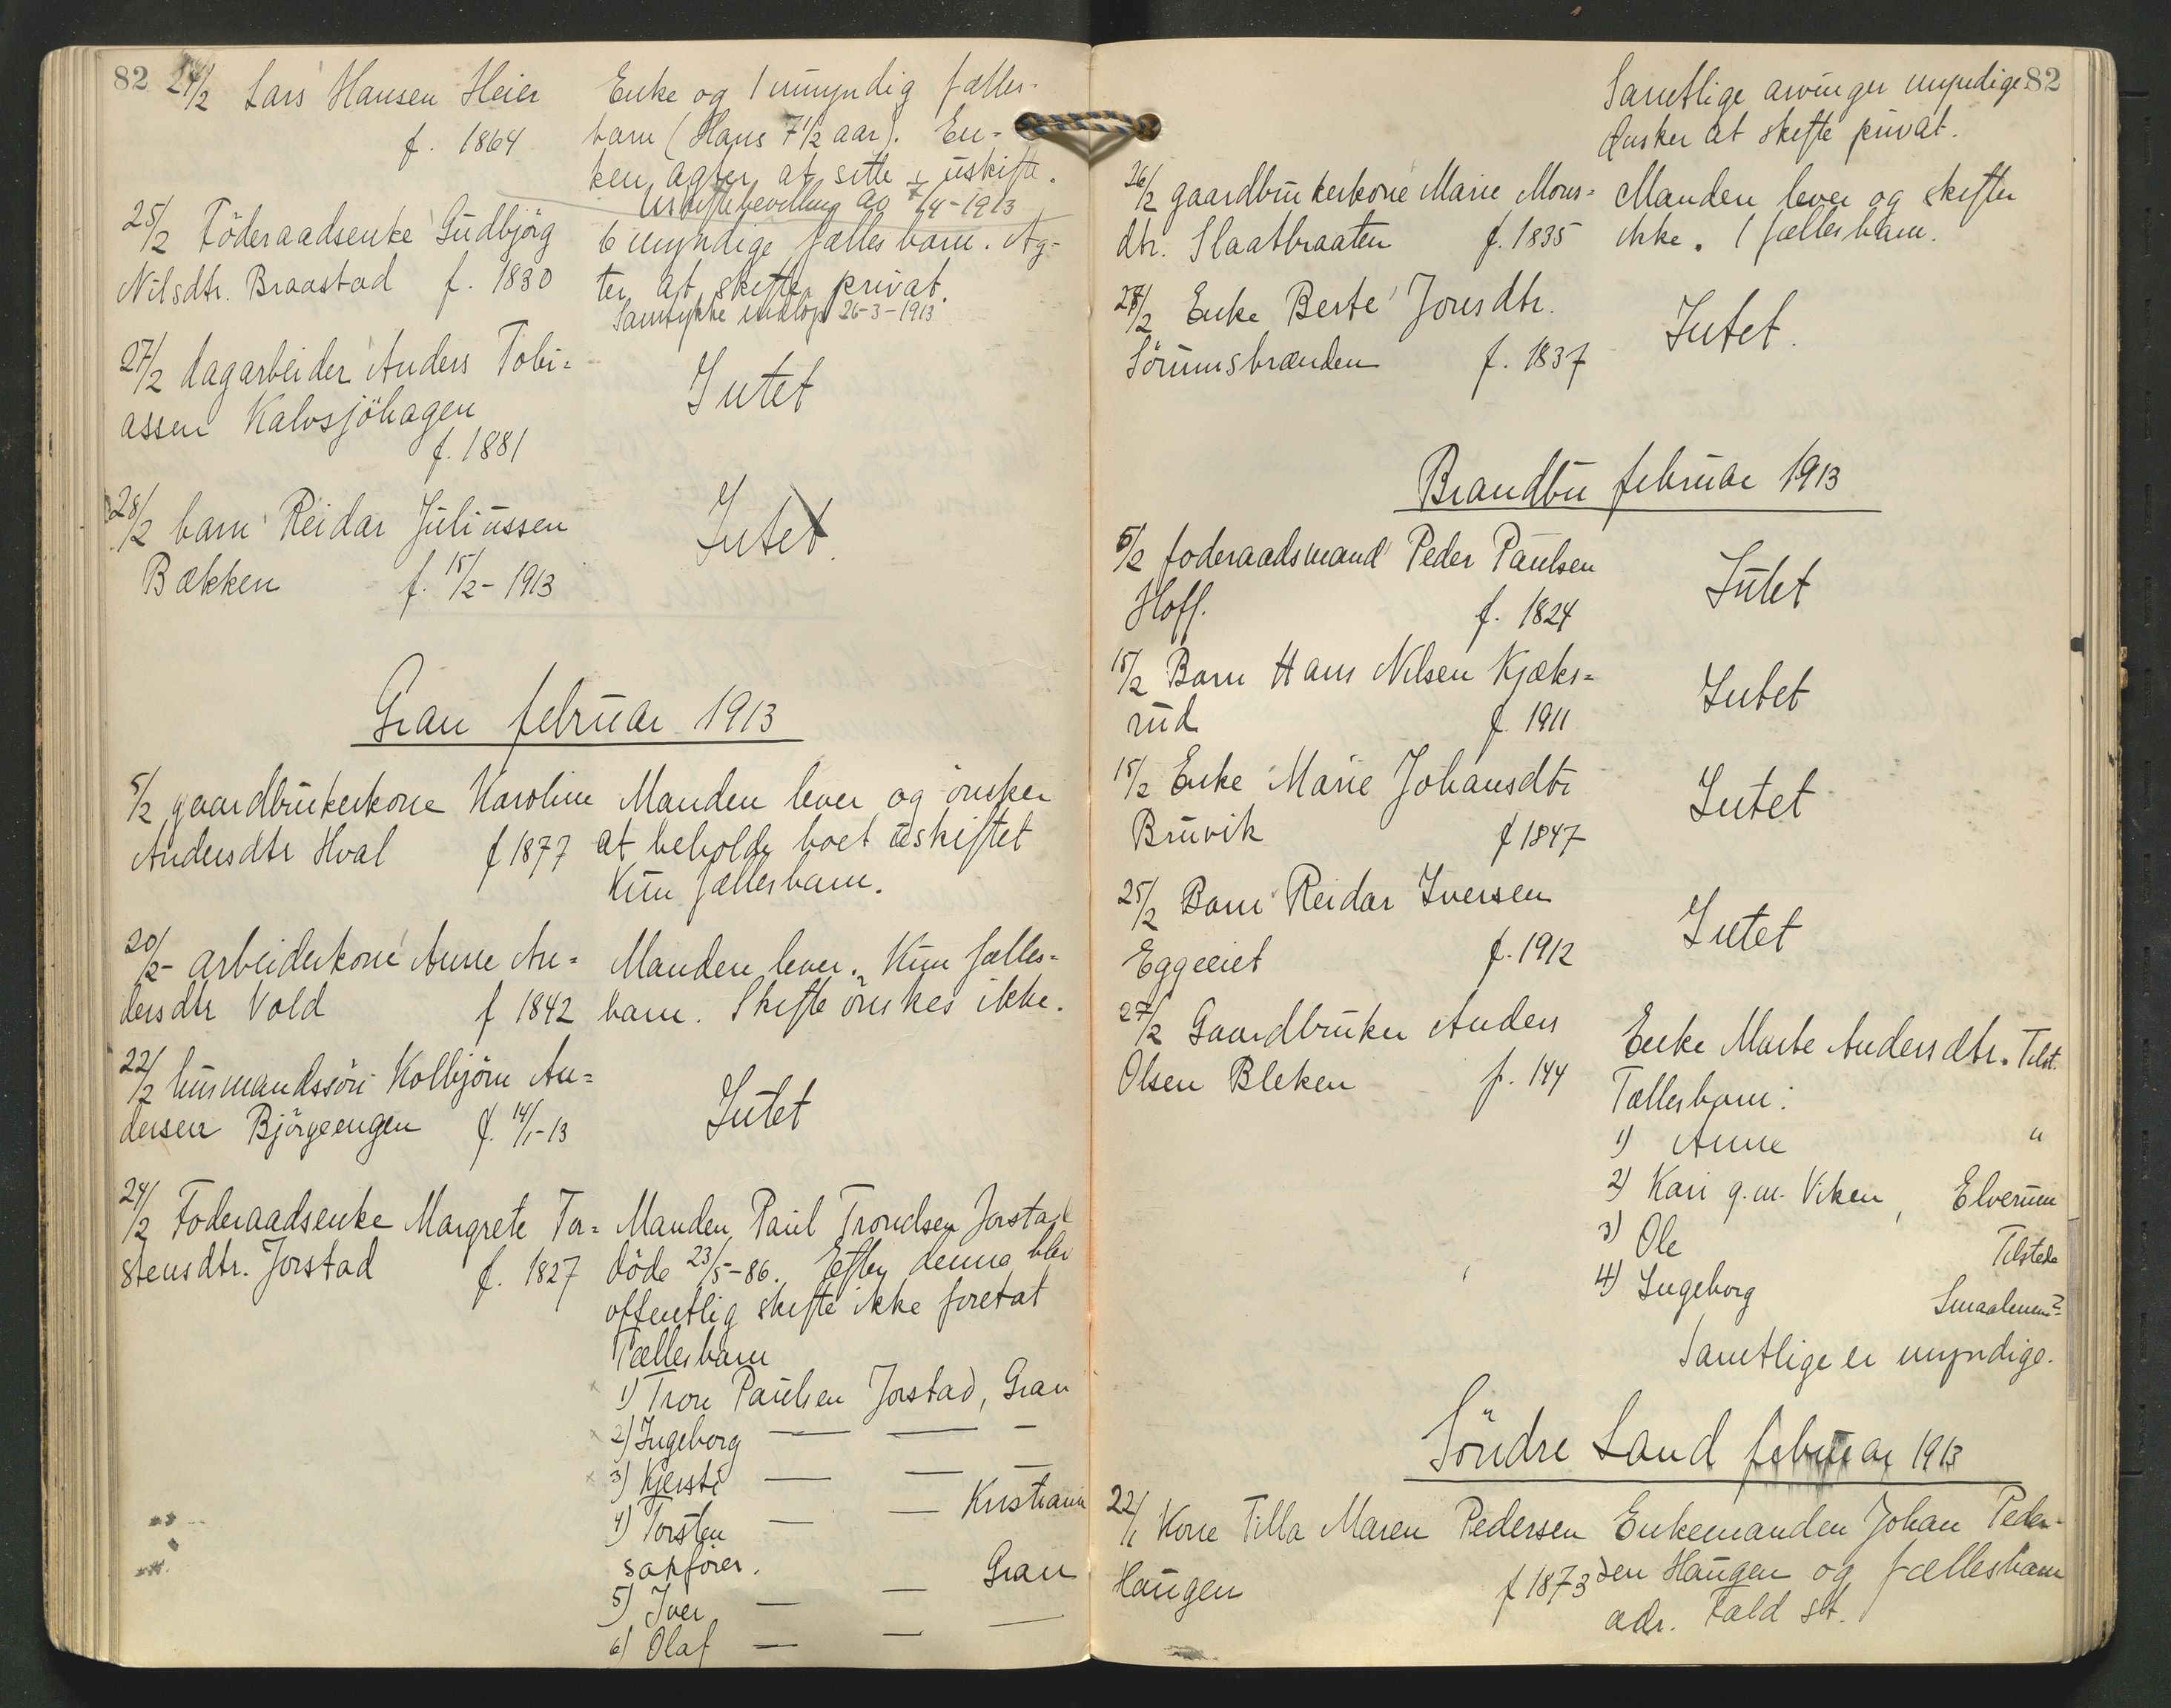 82
24/2 Lars Hansen Heier
f. 1864
Enke og 1 umyndig fælles-
barn (Hans 7 1/2 aar). En-
ken agter at sitte i uskifte.
Uskiftebevilling av 7/4-1913
25/2 Föderaadsenke Gudbjörg
Nilsdtr. Braastad f. 1830
6 myndige fællesbarn. Ag-
ter at skifte privat.
Samtykke indlöp 26-3-1913
27/2 dagarbeider Anders Tobi=
assen Kalvsjöhagen
f. 1881
Intet
28/2 barn Reidar Juliussen
Bækken f. 15/2-1913
Intet.
Gran februar 1913
5/2 gaardbrukerkone Karoline
Andersdtr Hval f 1877
Manden lever og ønsker
at beholde boet uskiftet
Kun fællesbarn.
20/2- arbeiderkone Anne An=
dersdtr Vold f 1842
Manden lever. Kun fælles=
barn. Skifte önskes ikke.
22/2 husmandssön Kolbjörn An=
dersen Björgeengen f. 14/1-13
Intet
24/2 Foderaadsenke Margrete Tor=
stensdtr. Jorstad f. 1827
Manden Paul Trondsen Jorstad
döde 23/5-86. Efter denne blev
offentlig skifte ikke foretat
Fællesbarn
1) Tron Paulsen Jorstad, Gran
2) Ingeborg — — —
3) Kjersti — — —
4) Torsten — — Kristiania
sakförer.
5) Iver — — Gran
6) Olaf — — —
82
Samtlige arvinger myndige
Ønsker at skifte privat.
26/2 gaardbrukerkone Marie Mons=
dtr. Slaatbraaten f. 1835
Manden lever og skifter
ikke. 1 fællesbarn.
28/2 Enke Berte Jonsdtr.
Sörumsbrænden f. 1837
Intet.
Brandbu februar 1913
5/2 foderaadsmand Peder Paulsen
Hoff. f. 1824
Intet
15/2 Barn Hans Nilsen Kjæks=
rud f. 1911
Intet
15/2 Enke Marie Johansdtr
Bruvik f 1847
Intet
25/2 Barn Reidar Iversen
Eggeeiet f. 1912
Intet
27/2 Gaardbruker Anders
Olsen Bleken f. 144
Enke Marte Andersdtr. Tilst.
Fællesbarn:
1) Anne "
2) Kari g.m. Viken, Elverum
3) Ole Tilstede
4) Ingeborg Smaalenene?
Samtlige er myndige.
Söndre Land februar 1913
22/1 Kone Tilla Maren Pedersen
Haugen f 1873
Enkemanden Johan Peder-
sen Haugen og fællesbarn
adr. Fald st.